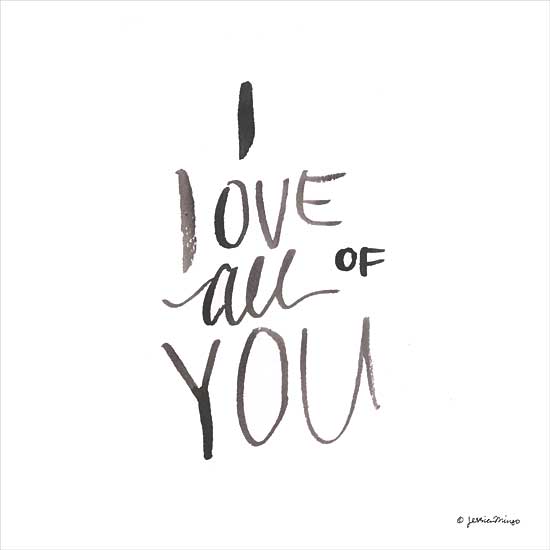 I
LOVE
all OF
YOU
© Jessica Mingo